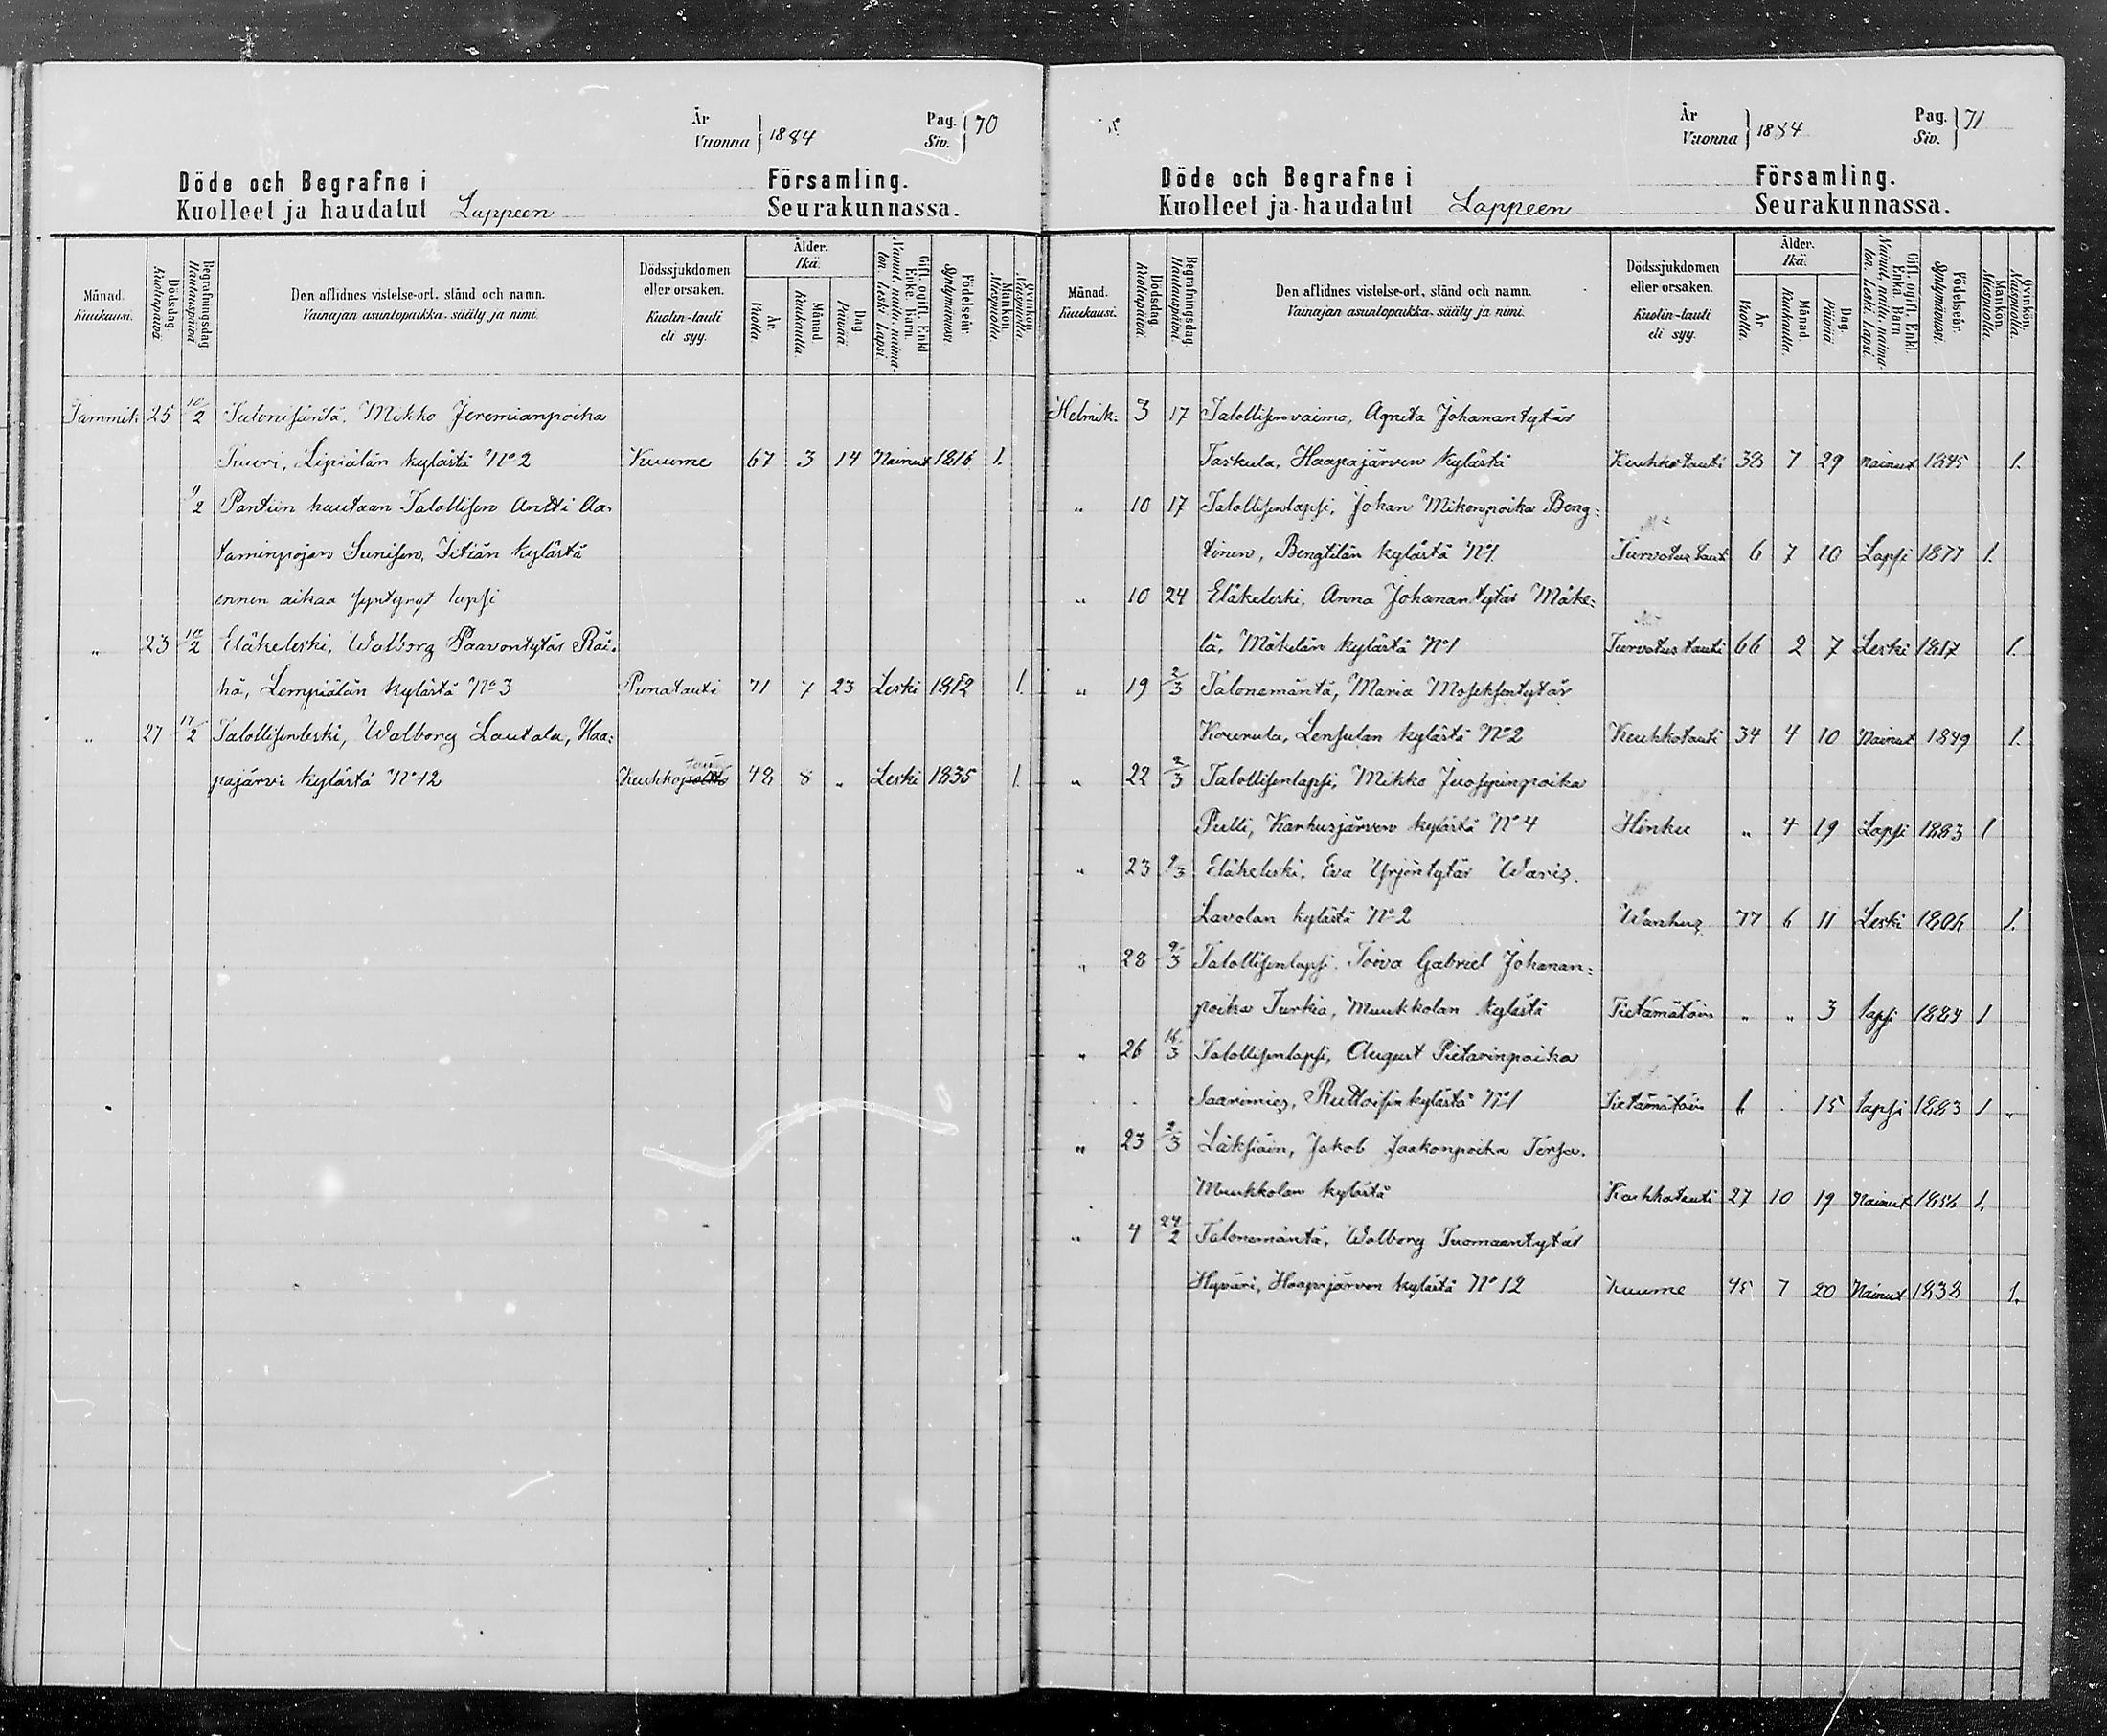 År
Vuonna } 1884
Pag.
Siv. } 70
Döde och Begrafne i Församling.
Kuolleet ja haudatut Lappeen Seurakunnassa.
Månad. Kuukausi.
Dödsdag. Kuolinpäivä
Begrafningsdag Hautauspäivä
Den aflidnes vistelse-ort, stånd och namn.
Vainajan asuntopaikka, sääty ja nimi.
Dödssjukdomen eller orsaken.
Kuolin-tauti eli syy.
Ålder. Ikä.
År Vuotta
Månad Kuukautta.
Dag Päivää
Gift, ogift, Enkl. Enka, Barn.
Nainut, naitu, naimaton, Leski, Lapsi.
Födelseår. Syntymävuosi.
Mankön. Miespuolia
Qvinkön. Naispuolia
Tammik. 25 10/2 Talonisäntä, Mikko Jeremianpoika
Tuuri, Lipiälän kylästä No 2 Kuume 67 3 14 Nainut 1816 1.
9/2 Pantiin hautaan Talollisen Antti Aa-
taminpojan Sunisen, Iitiän kylästä
ennen aikaa syntynyt lapsi
" 23 10/2 Eläkeleski, Walborg Paavontytär Räi-
hä, Lempiälän kylästä No 3 Punatauti 71 7 23 Leski 1812 1.
" 27 17/2 Talollisenleski, Walborg Lautala, Haa-
pajärvi kylästä No 12 Keuhkopoltto tauti 48 8 " Leski 1835 1.
År
Vuonna } 1884
Pag.
Siv. } 71
Döde och Begrafne i Församling.
Kuolleet ja haudatut Lappeen Seurakunnassa.
Månad. Kuukausi.
Dödsdag. Kuolinpäivä.
Begrafningsdag. Hautauspäivä.
Den aflidnes vistelse-ort, stånd och namn.
Vainajan asuntopaikka, sääty ja nimi.
Dödssjukdomen eller orsaken.
Kuolin-tauti eli syy.
Ålder. Ikä.
År. Vuotta.
Månad. Kuukautta.
Dag. Päivää.
Gift, ogift, Enkl. Enka, Barn
Nainut, naitu, naimaton, Leski, Lapsi.
Födelseår. Syntymävuosi.
Mankön. Miespuolia.
Qvinkön. Naispuolia.
Helmik: 3 17 Talollisenvaimo, Agneta Johanantytär
Taskula, Haapajärven kylästä Keuhkotauti 38 7 29 nainut 1845 1.
" 10 17 Talollisenlapsi, Johan Mikonpoika Beng-
tinen, Bengtilän kylästä No 1. Turvotus tauti 6 7 10 Lapsi 1877 1.
" 10 24 Eläkeleski, Anna Johanantytär Mäke-
lä, Mäkelän kylästä No 1 Turvotus tauti 66 2 7 Leski 1817 1.
" 19 2/3 Talonemäntä, Maria Moseksentytär
Kounula, Lensulan kylästä No 2 Keuhkotauti 34 4 10 Nainut 1849 1.
" 22 2/3 Talollisenlapsi, Mikko Juosepinpoika
Pulli, Karhusjärven kylästä No 4 Hinku " 4 19 Lapsi 1883 1
" 23 2/3 Eläkeleski, Eva Yrjöntytär Waris.
Lavolan kylästä No 2 Wanhus 77 6 11 Leski 1806 1.
" 28 9/3 Talollisenlapsi, Toiva Gabriel Johanan-
poika Turkia, Muukkolan kylästä Tietämätöin " " 3 lapsi 1884 1
" 26 16/3 Talollisenlapsi, August Pietarinpoika
Saarimies, Ruttoisin kylästä No 1 Tietämätöin 1 . 15 lapsi 1883 1
" 23 2/3 Läksiäin, Jakob Jaakonpoika Torsa.
Muukkolan kylästä Keuhkotauti 27 10 19 Nainut 1856 1.
" 4 24/2 Talonemäntä, Walborg Tuomaantytär
Hyväri, Haapajärven kylästä No 12 Kuume 45 7 20 Nainut 1838 1.